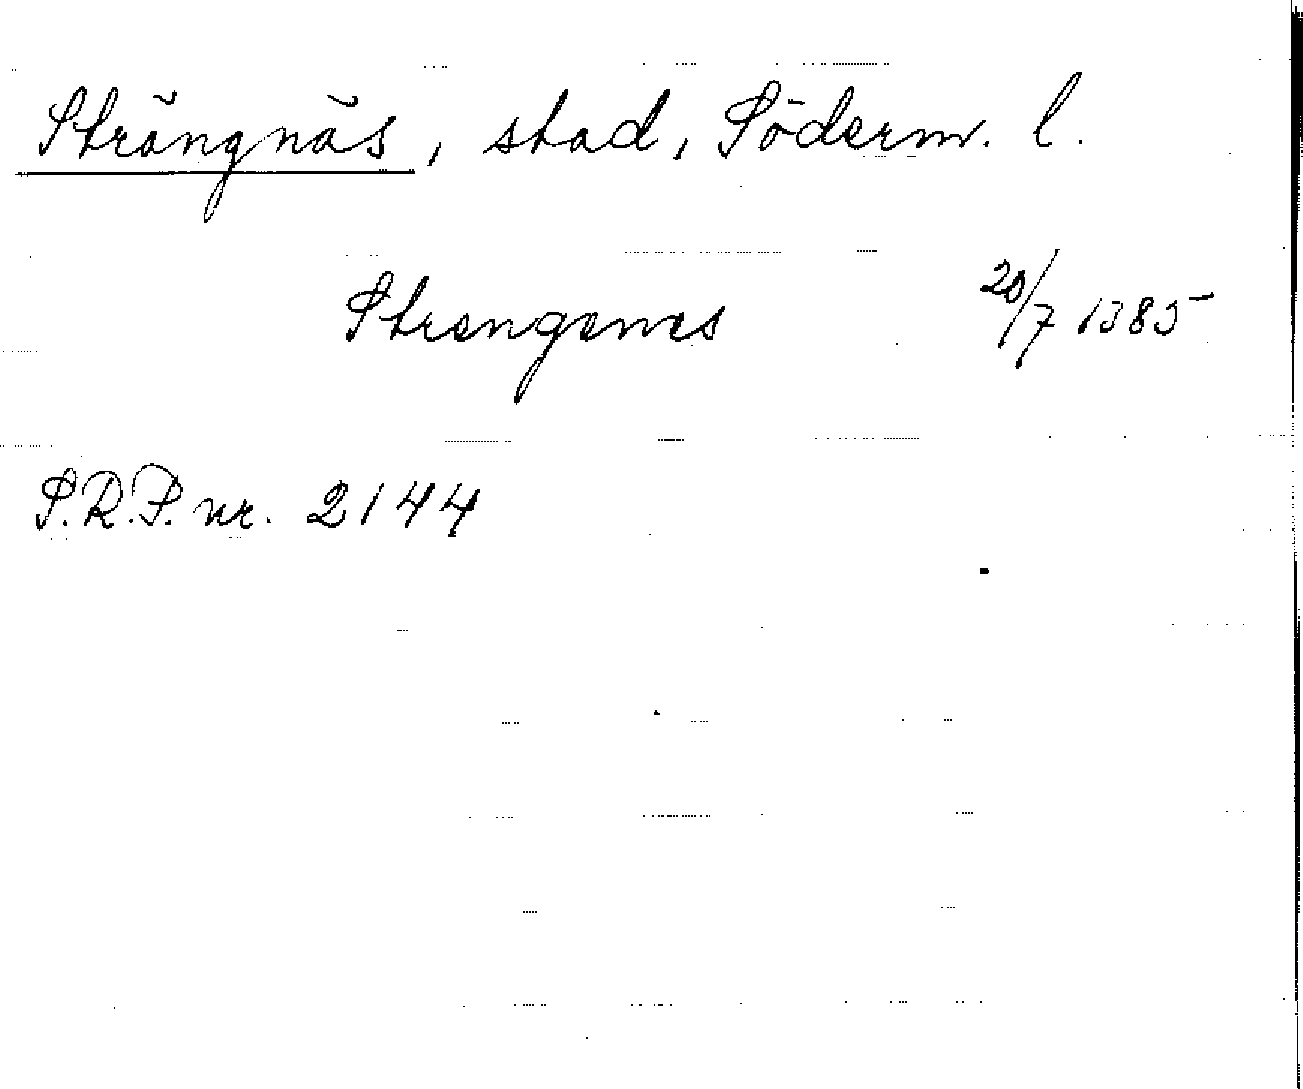 Strängnäs, stad, Söderm. l.
Strengenes 20/7 1385
S.R.P. nr. 2144